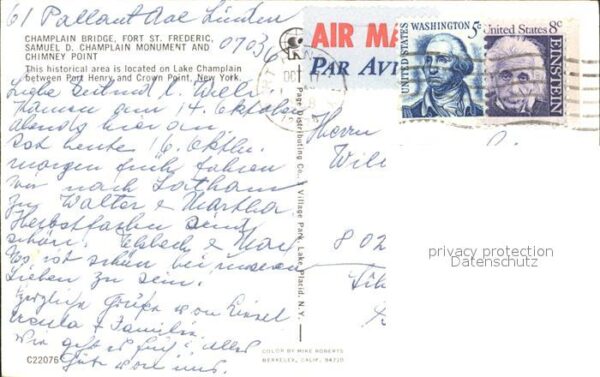 61 Pallant Ave Linden
07036
CHAMPLAIN BRIDGE, FORT ST. FREDERIC,
SAMUEL D. CHAMPLAIN MONUMENT AND
CHIMNEY POINT
This historical area is located on Lake Champlain
between Port Henry and Crown Point, New York.
Liebe Gertrud & Willi
Kamen am 14. Oktober
abends hier an
Ist heute 16. Oktbr.
morgen früh fahren
wir nach Latham
zu Walter & Martha.
Herbstfarben sind
schön.
Es ist schön bei unseren
Lieben zu sein.
Herzliche Grüße von
Ursula & Familie
Wie geht es Euch? alles
Gute von uns.
C22076
Page Distributing Co., Village Park, Lake Placid, N.Y.
COLOR BY MIKE ROBERTS
BERKELEY, CALIF. 94710
AIR MA
PAR AVI
OCT
UNITED STATES
WASHINGTON 5c
United States 8c
EINSTEIN
Herrn
Wil
802
privacy protection
Datenschutz